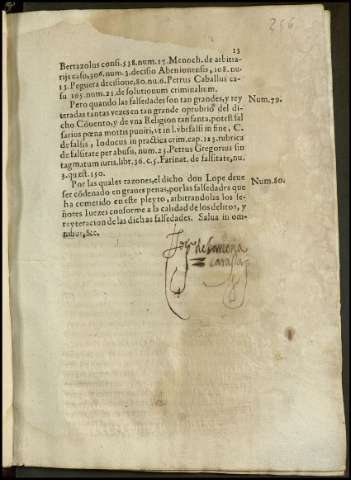 256
13
Bertazolus consi. 538. num. 17. Menoch. de arbitra-
rijs casu, 306. num. 3. decisio Abenionensis, 108. nu-
13. Peguera decisione, 80. nu. 6. Petrus Caballus ca-
su 105. num. 21. de solutionum criminalium.
Pero quando las falsedades son tan grandes, y rey
teradas tantas vezes en tan grande oprobrio del di-
cho Cõuento, y de vna Religion tan santa, potest fal
sarius pœna mortis puniri, vt in l. vbi falsi in fine, C.
de falsis, Iodocus in practica crim. cap. 123. rubrica
de falsitate per abusum, num. 23. Petrus Gregorius sin
tagmatum iuris, libr. 36. c. 5. Farinat. de falsitate, nu.
3. quæst. 150.
Num. 79.
Por las quales razones, el dicho don Lope deue
ser cõdenado en graues penas, por las falsedades que
ha cometido en este pleyto, arbitrandolas los se-
ñores Iuezes conforme a la calidad de los delitos, y
reyteracion de las dichas falsedades. Salua in om-
nibus, &c.
Num. 80.